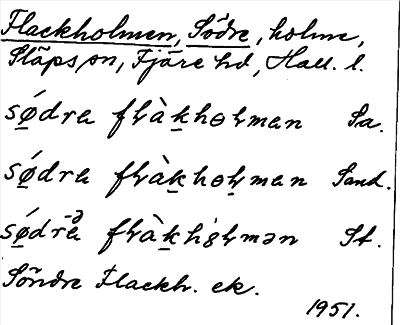 Flackholmen, Södre, holme,
Släps sn, Fjäre hd, Hall. l.
sǿdra flàkholman Sa.
sǿdra flàkholman Sand.
sǿdrə flàkhólmən St.
Söndre Flackh. ek.
1951.